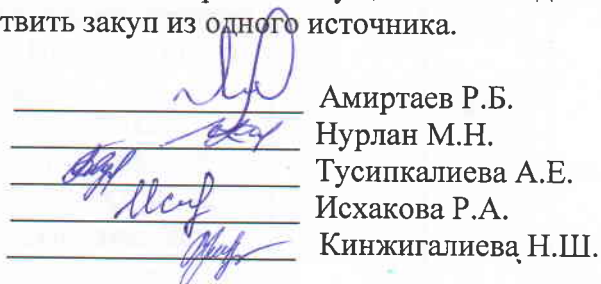 твить закуп из одного источника.
Амиртаев Р.Б.
Нурлан М.Н.
Тусипкалиева А.Е.
Исхакова Р.А.
Кинжигалиева Н.Ш.